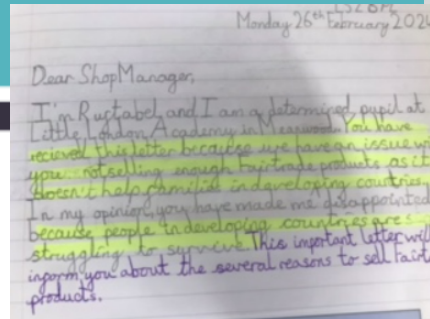 Monday 26th February 202
Dear Shop Manager,
I'm and I am a determined pupil at
Little London Academy in You have
recieved this letter because we have an issue wi
you not selling enough Fairtrade products as it
doesn't help families in developing countries.
In my opinion, you have made me disappointed
because people in developing countries are
struggling to survive. This important letter will
inform you about the several reasons to sell Fairt
products.